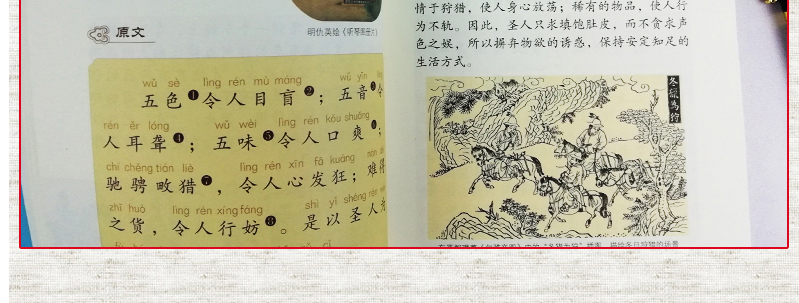 原文
明仇英绘《听琴图
wǔ sè lìng rén mù máng wǔ yīn
五色❶令人目盲❷；五音❸令
rén ěr lóng wǔ wèi lìng rén kǒu shuǎng
人耳聋❹；五味❺令人口爽❻；
chí chěng tián liè lìng rén xīn fā kuáng
驰骋畋猎❼，令人心发狂；难得
zhī huò lìng rén xíng fáng shì yǐ shèng rén
之货，令人行妨❽。是以圣人
情于狩猎，使人身心放荡；稀有的物品，使人行
为不轨。因此，圣人只求填饱肚皮，而不贪求声
色之娱，所以摒弃物欲的诱惑，保持安定知足的
生活方式。
冬獵為狩